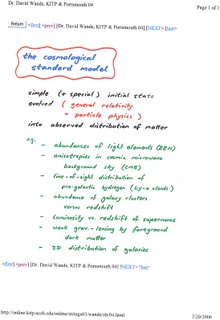 Dr. David Wands, KITP & Portsmouth 04
Page 1 of 1
Return | <first| <prev| [Dr. David Wands, KITP & Portsmouth 04] |NEXT> |last>
the cosmological
standard model
simple (+ special) initial state
evolved (general relativity
+ particle physics)
into observed distribution of matter
eg.
- abundances of light elements (BBN)
- anisotropies in cosmic microwave
background sky (CMB)
- line-of-sight distribution of
pre-galactic hydrogen (Ly-α clouds)
- abundance of galaxy clusters
versus redshift
- luminosity vs. redshift of supernovae
- weak grav.-lensing by foreground
dark matter
- 3D distribution of galaxies
<first| <prev| [Dr. David Wands, KITP & Portsmouth 04] |NEXT> |last>
3/20/2006